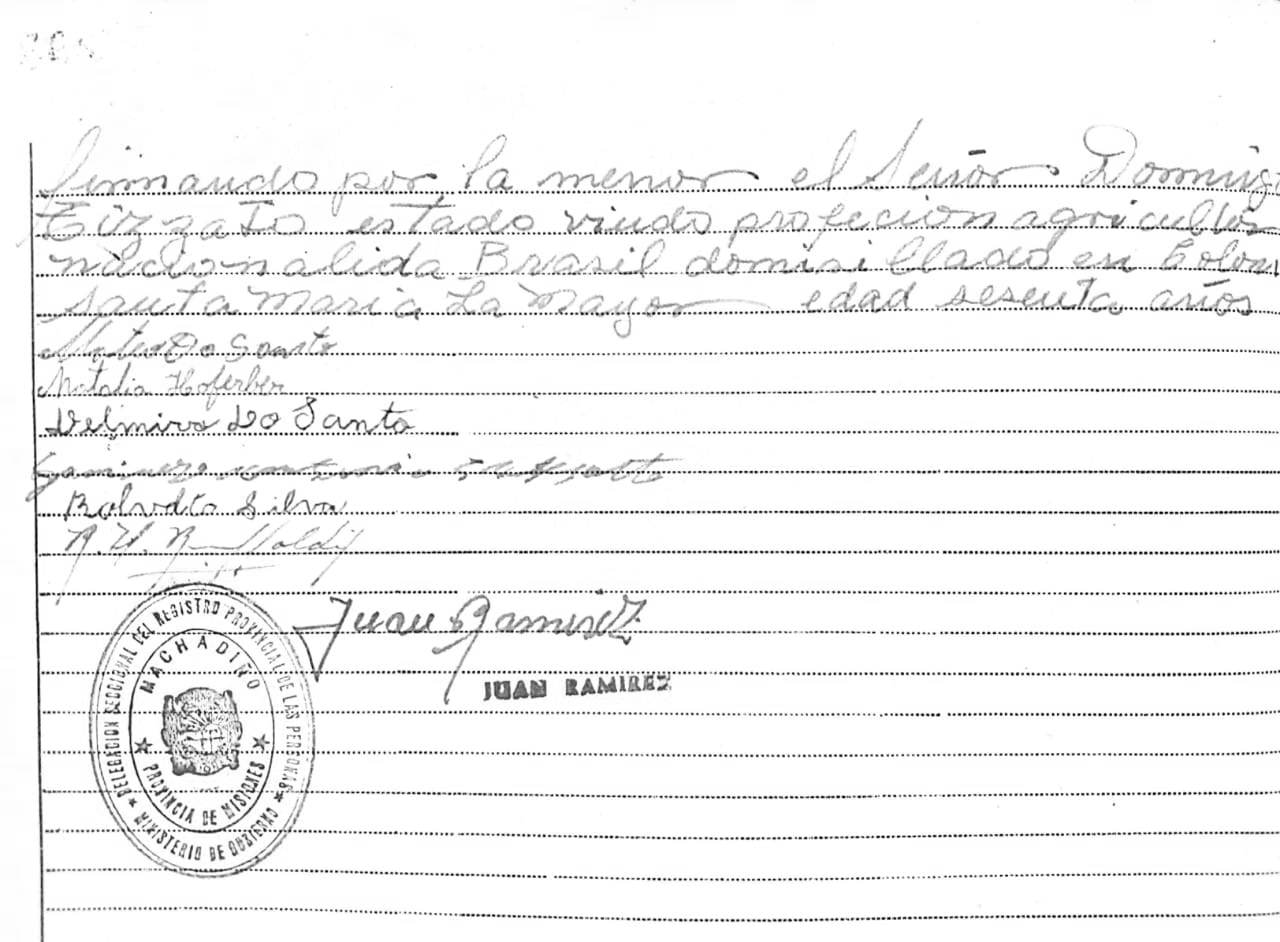 firmando por la menor el Señor Doming
Tizzato estado viudo profecion agricultor
nacionalida Brasil domisillado en Colon
Santa Maria La Mayor edad sesenta años
Mateo Do Santo
Natalia Hoferber
Delmiro Do Santo
Silva
Juan Ramirez
JUAN RAMIREZ
DELEGACION SECCIONAL DEL REGISTRO PROVINCIAL DE LAS PERSONAS
MACHADIÑO
PROVINCIA DE MISIONES
MINISTERIO DE GOBIERNO